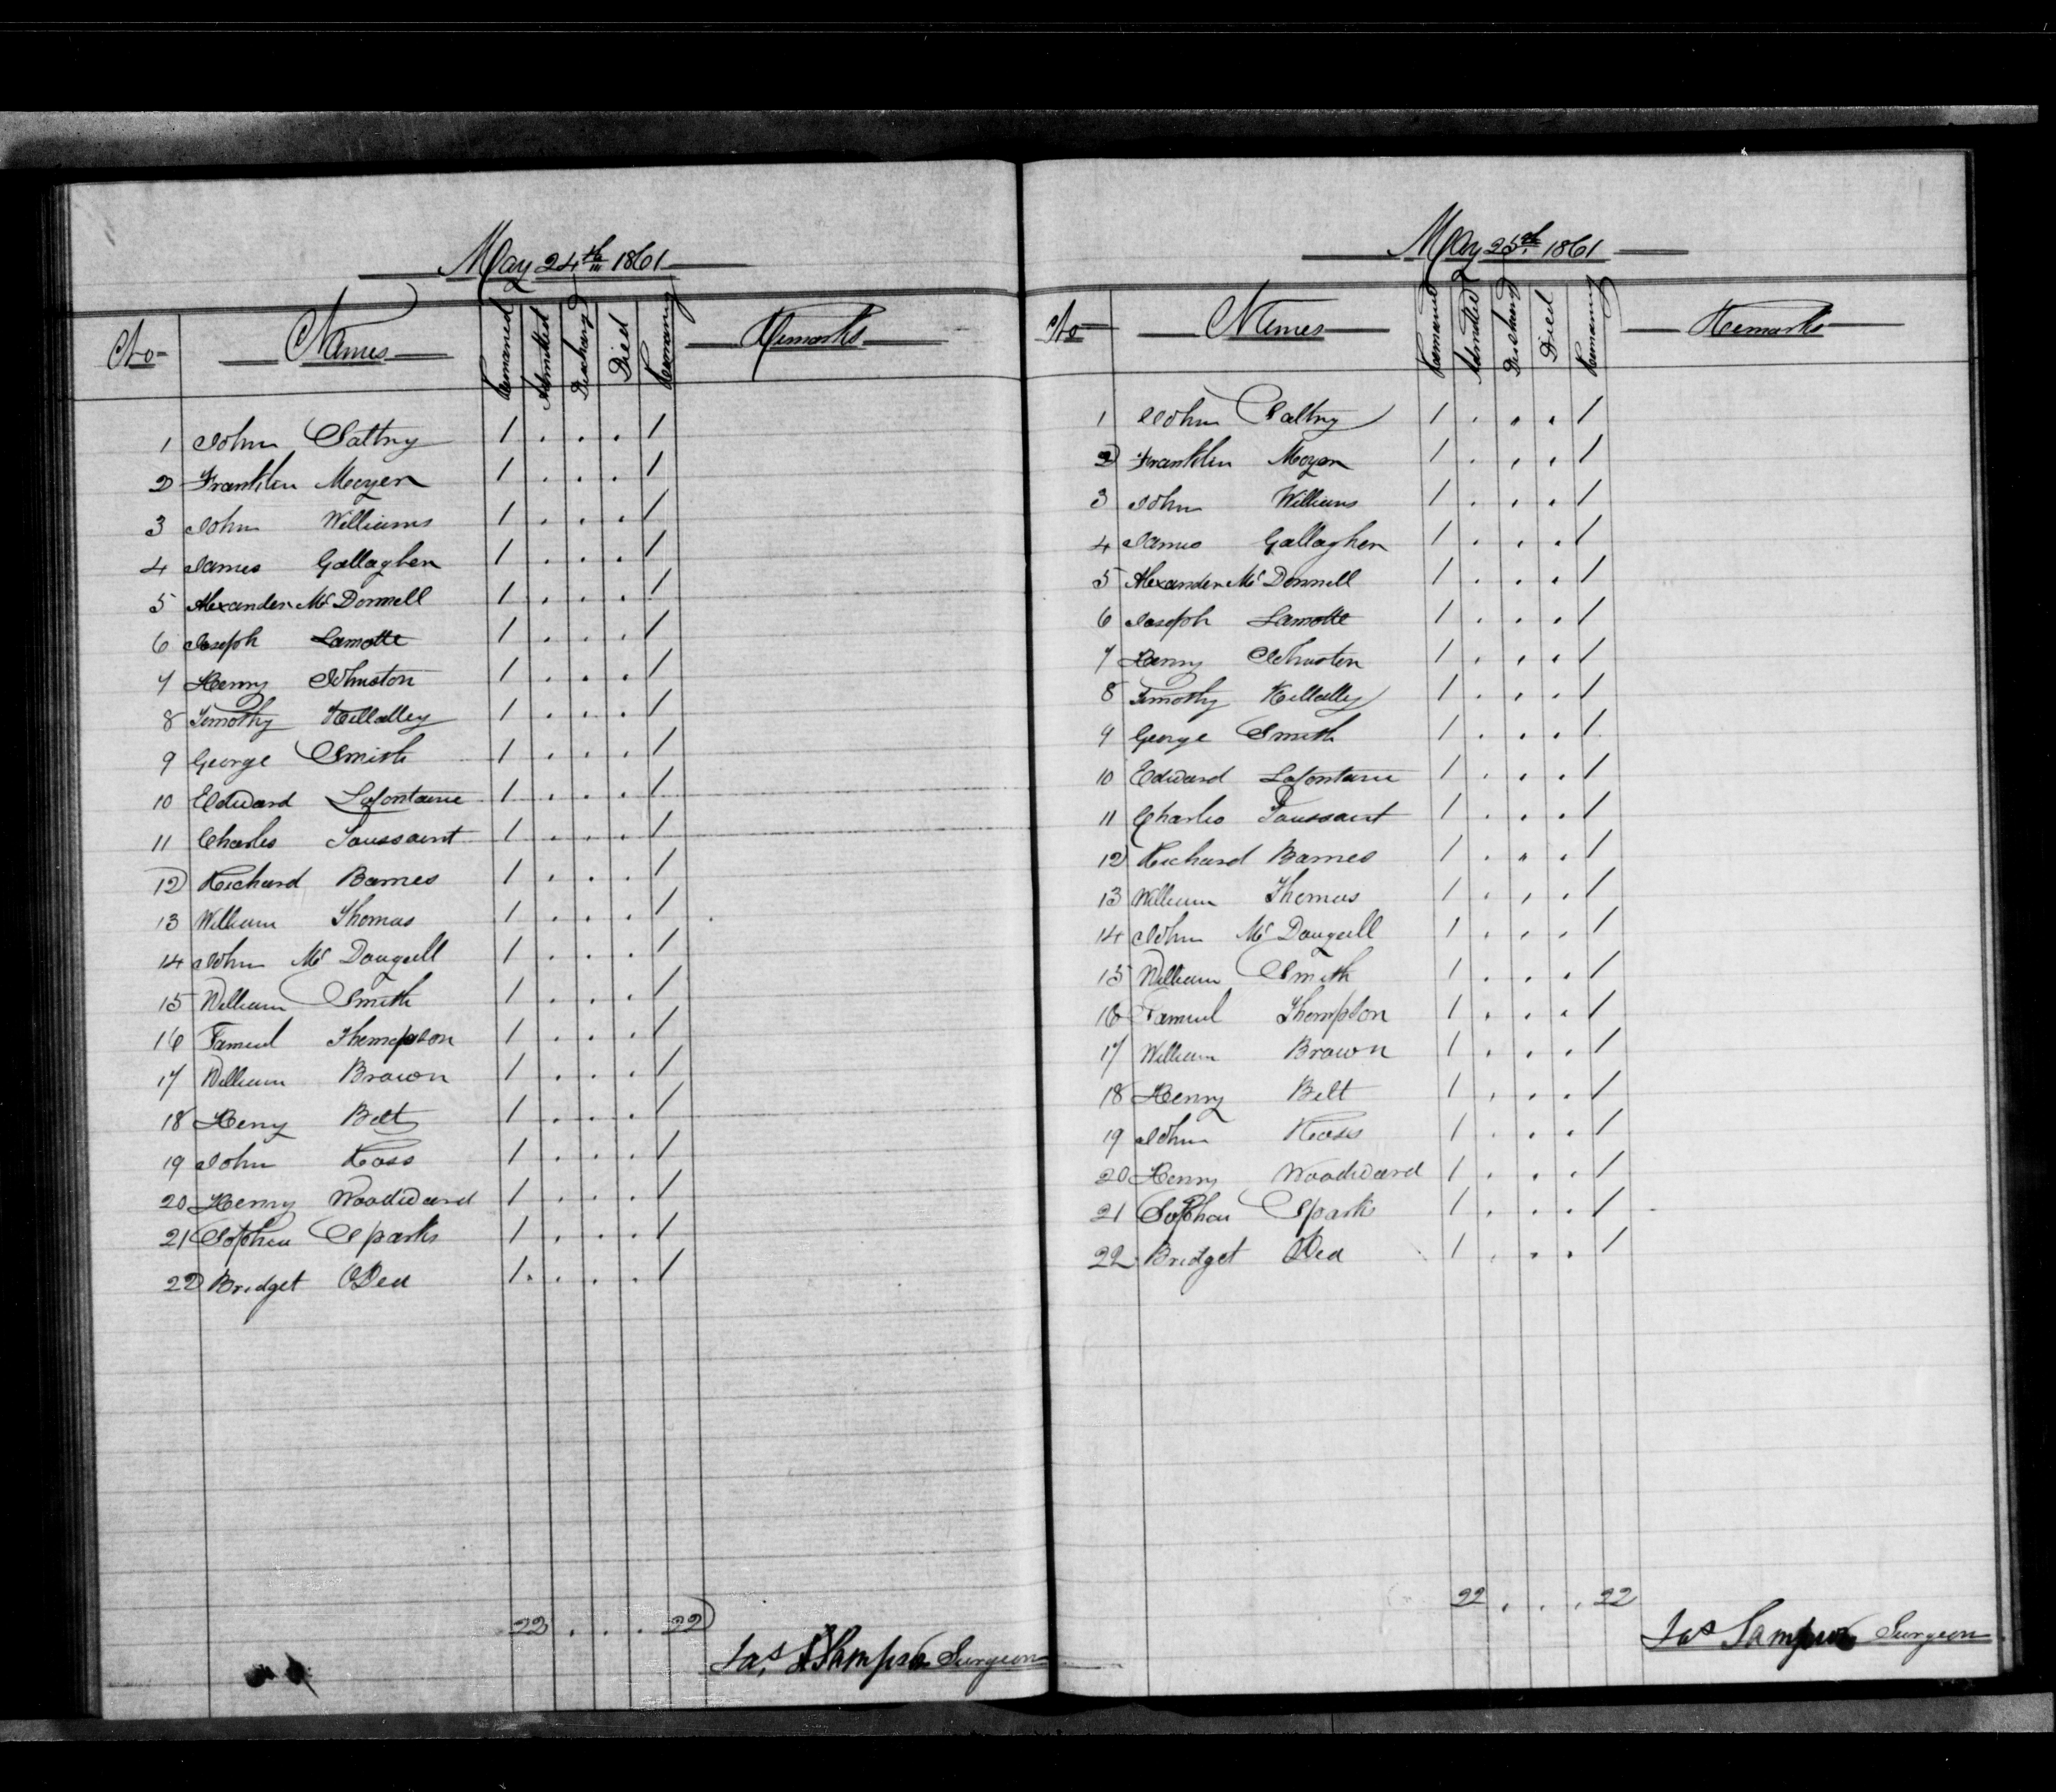 May 24th 1861
No Names Remained Admitted Discharged Died Remaining Remarks
1 John Saltry 1 . . . 1
2 Franklin Moyer 1 . . . 1
3 John Williams 1 . . . 1
4 James Gallagher 1 . . . 1
5 Alexander Mc Donnell 1 . . . 1
6 Joseph Lamotte 1 . . . 1
7 Henry Johnston 1 . . . 1
8 Timothy Killalley 1 . . . 1
9 George Smith 1 . . . 1
10 Edward Lafontaine 1 . . . 1
11 Charles Toussaint 1 . . . 1
12 Richard Barnes 1 . . . 1
13 William Thomas 1 . . . 1
14 John Mc Dougall 1 . . . 1
15 William Smith 1 . . . 1
16 Samuel Thompson 1 . . . 1
17 William Brown 1 . . . 1
18 Henry Belt 1 . . . 1
19 John Ross 1 . . . 1
20 Henry Woodward 1 . . . 1
21 Sophia Sparks 1 . . . 1
22 Bridget ODea 1 . . . 1
22 . . . 22
Jas Sampson Surgeon
May 25th 1861
No Names Remained Admitted Discharged Died Remaining Remarks
1 John Saltry 1 . . . 1
2 Franklin Moyer 1 . . . 1
3 John Williams 1 . . . 1
4 James Gallagher 1 . . . 1
5 Alexander Mc Donnell 1 . . . 1
6 Joseph Lamotte 1 . . . 1
7 Henry Johnston 1 . . . 1
8 Timothy Killalley 1 . . . 1
9 George Smith 1 . . . 1
10 Edward Lafontaine 1 . . . 1
11 Charles Toussaint 1 . . . 1
12 Richard Barnes 1 . . . 1
13 William Thomas 1 . . . 1
14 John Mc Dougall 1 . . . 1
15 William Smith 1 . . . 1
16 Samuel Thompson 1 . . . 1
17 William Brown 1 . . . 1
18 Henry Belt 1 . . . 1
19 John Ross 1 . . . 1
20 Henry Woodward 1 . . . 1
21 Sophia Sparks 1 . . . 1
22 Bridget ODea 1 . . . 1
22 . . . 22
Jas Sampson Surgeon